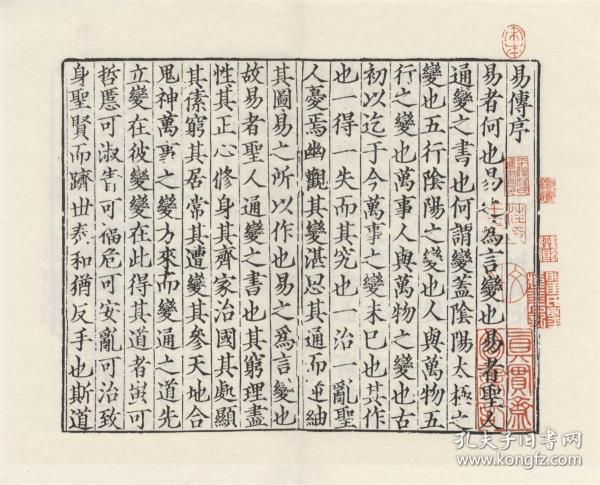 易傳序
易者何也易之爲言變也易者聖人
通變之書也何謂變蓋陰陽太極之
變也五行陰陽之變也人與萬物五
行之變也萬事人與萬物之變也古
初以迄于今萬事之變未已也其作
也一得一失而其究也一治一亂聖
人憂焉幽觀其變湛思其通而逆紬
其圖易之所以作也易之爲言變也
故易者聖人通變之書也其窮理盡
性其正心修身其齊家治國其處顯
其傃窮其居常其遭變其參天地合
鬼神萬事之變方來而變通之道先
立變在彼變變在此得其道者蚩可
哲慝可淑眚可福危可安亂可治致
身聖賢而躋世泰和猶反手也斯道
真賞齋
孔夫子旧书网
www.kongfz.com